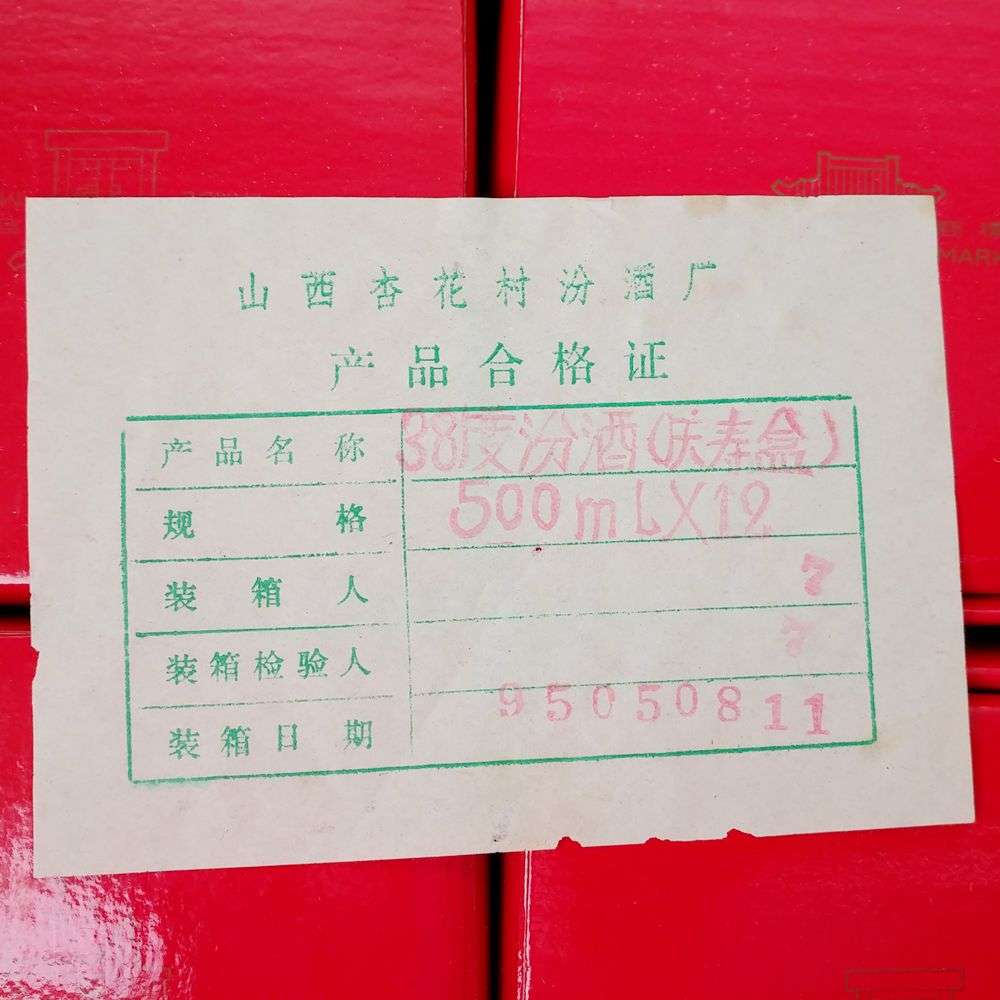 山西杏花村汾酒厂
产品合格证
产品名称 38度汾酒(庆寿盒)
规格 500mL×12
装箱人 7
装箱检验人 7
装箱日期 95050811